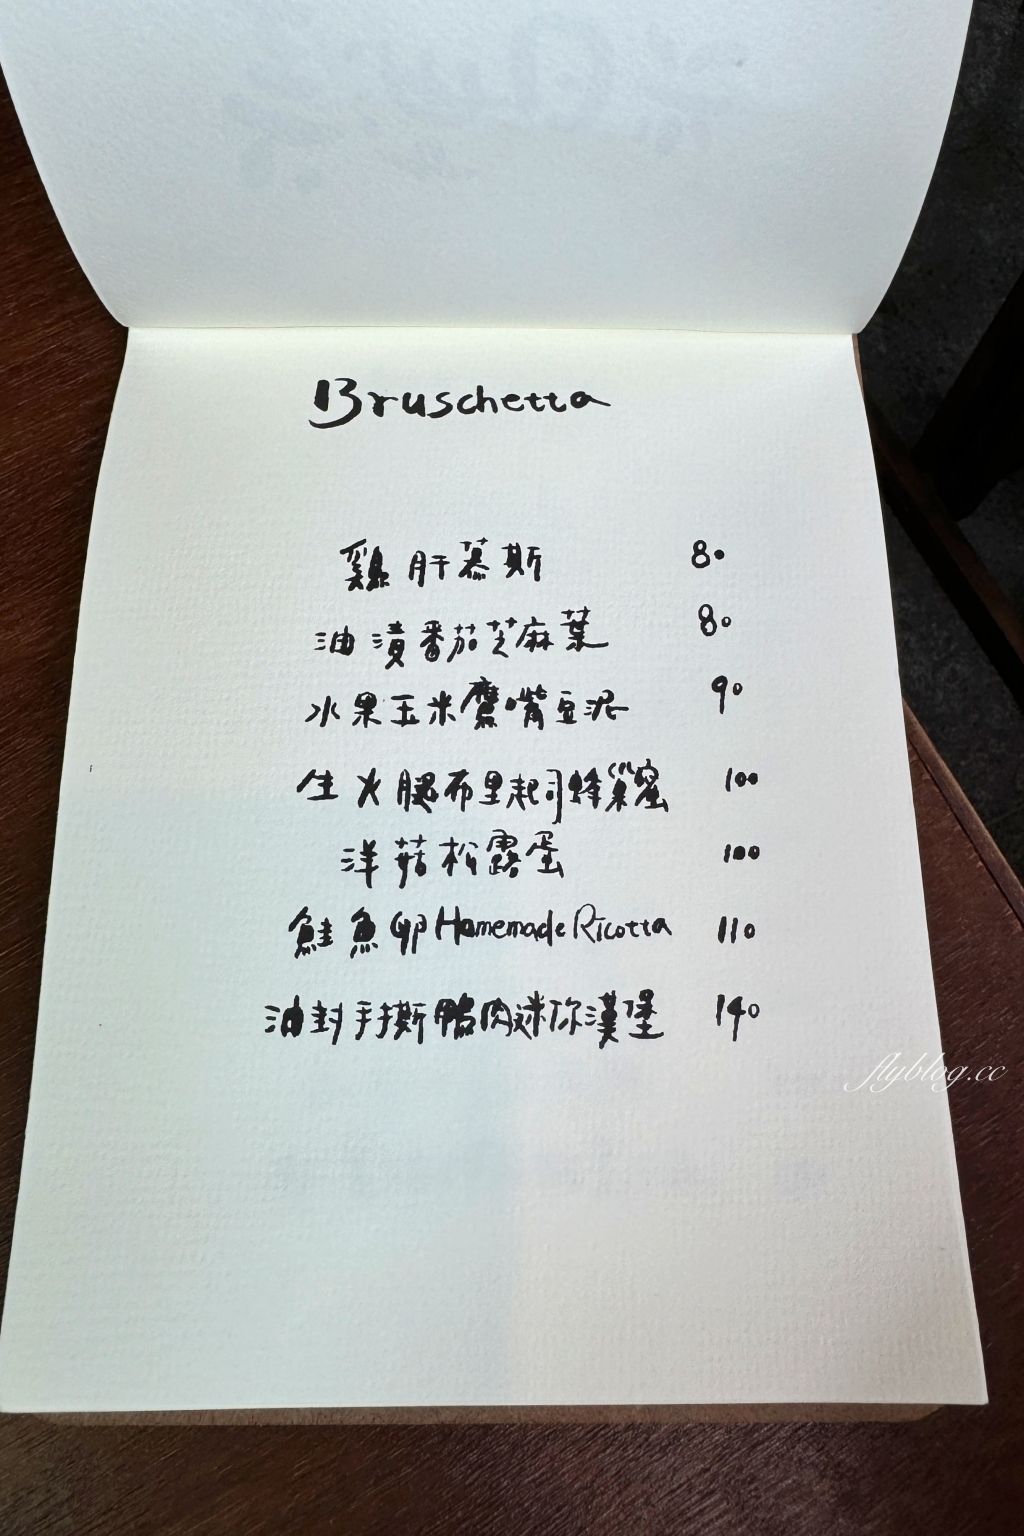 Bruschetta
雞肝慕斯 80
油漬番茄芝麻葉 80
水果玉米鷹嘴豆泥 90
生火腿布里起司蜂巢蜜 100
洋菇松露蛋 100
鮭魚卵 Homemade Ricotta 110
油封手撕鴨肉迷你漢堡 140
flyblog.cc